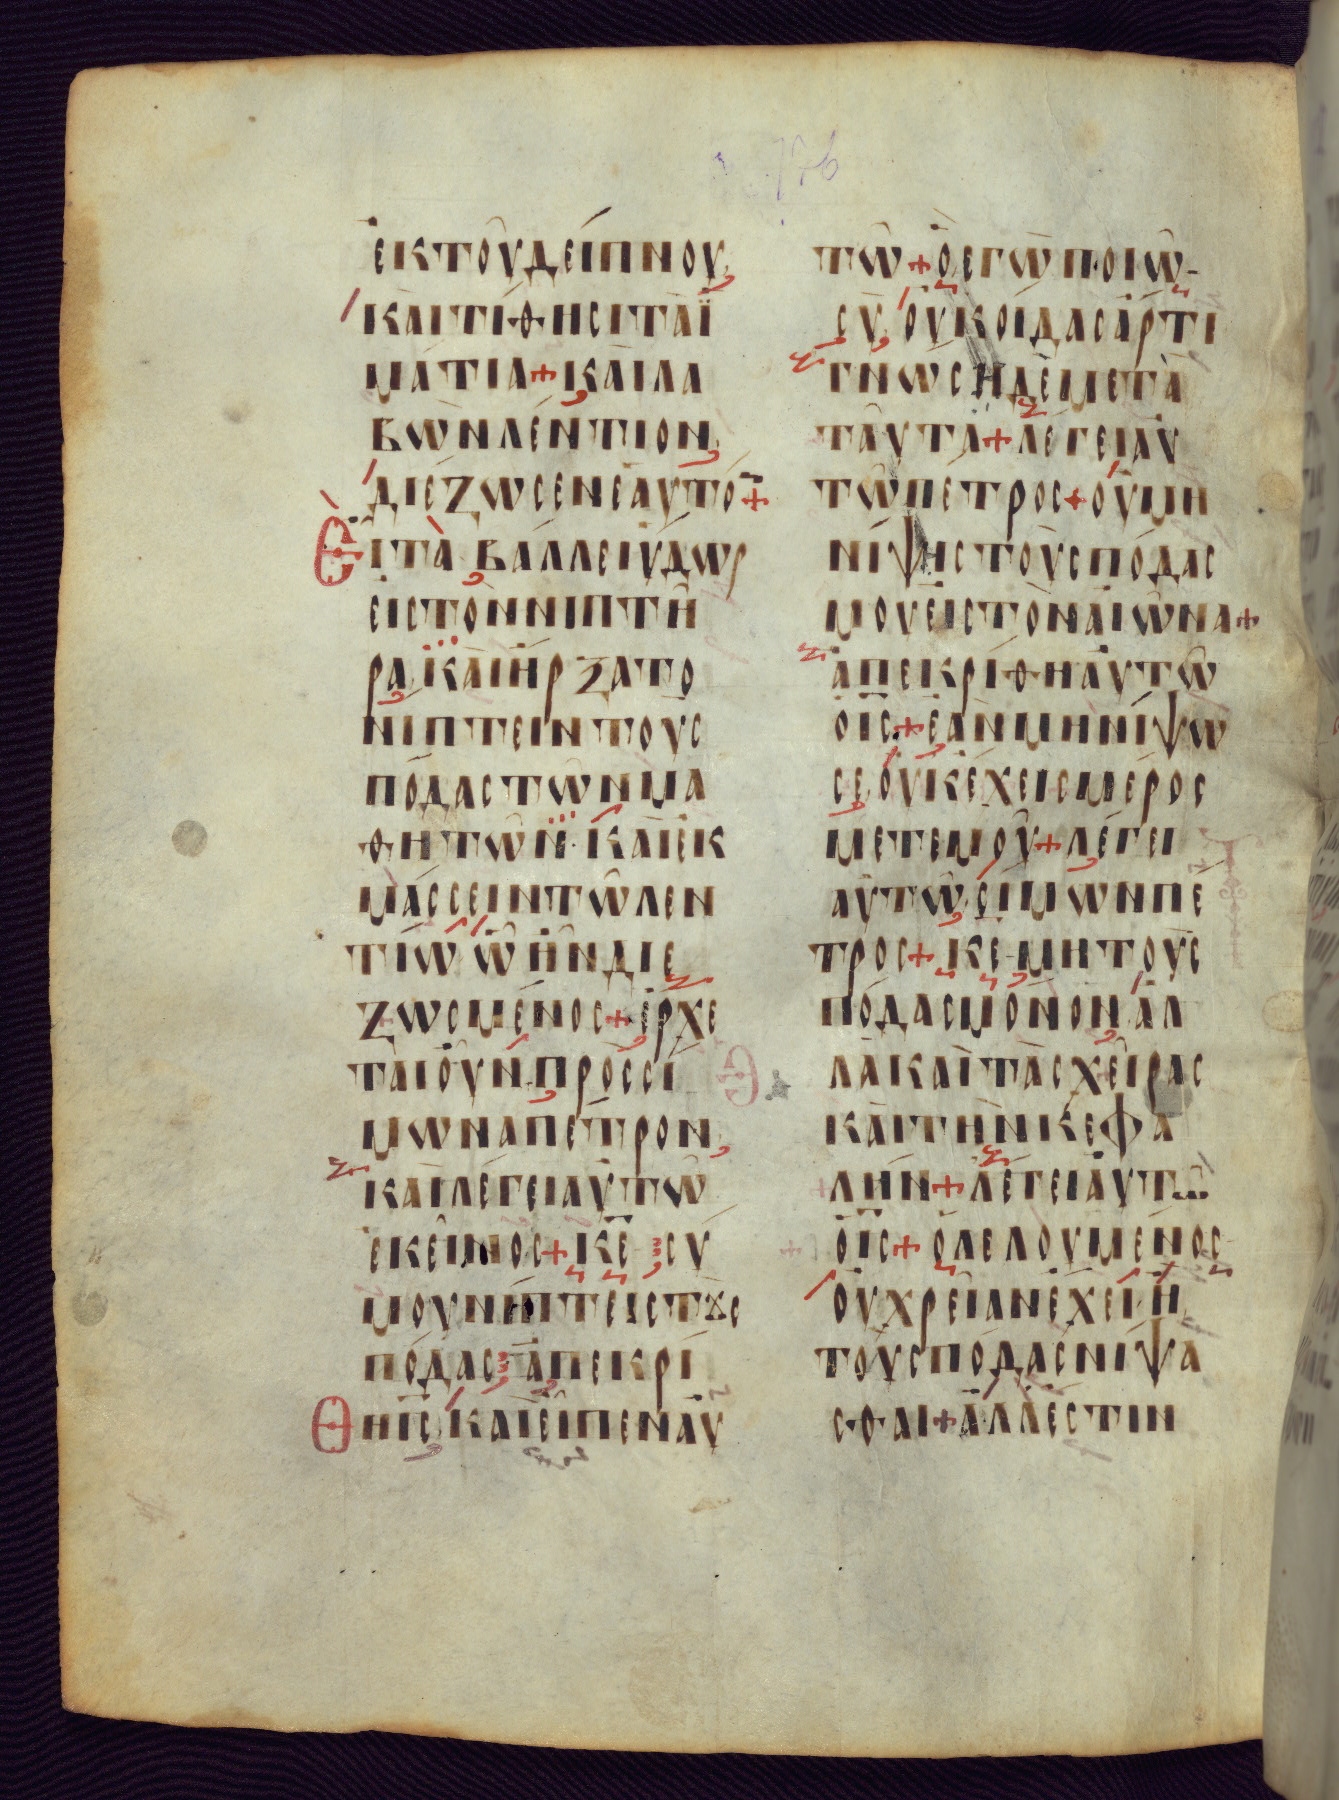 176
ἐκ τοῦ δείπνου
καὶ τίθησι τὰ ϊ
μάτια + καὶ λα
βὼν λέντιον
διέζωσεν ἑαυτό +
Εἶτα βάλλει ὕδωρ
εἰς τὸν νιπτῆ
ρα καὶ ἤρξατο
νίπτειν τοὺς
πόδας τῶν μα
θητῶν · καὶ ἐκ
μάσσειν τῶ λεν
τίω ὧ ἦν διε
ζωσμένος + ἔρχε
ται οὖν πρὸς Σί
μωνα πέτρον
καὶ λέγει αὐτῶ
ἐκεῖνος + κε σύ
μου νίπτεις τοὺς
πόδας ἀπεκρί
Θη ις καὶ εἶπεν αὐ
τῶ + ὃ ἐγὼ ποιῶ
σὺ οὐκ οἶδας ἄρτι
γνώση δὲ μετὰ
ταῦτα + λέγει αὐ
τῶ πέτρος + οὐ μὴ
νίψης τοὺς πόδας
μου εἰς τὸν αἰῶνα +
ἀπεκρίθη αὐτῶ
ὁ ις + ἐὰν μὴ νίψω
σε οὐκ ἔχεις μέρος
μετ ἐμοῦ + λέγει
αὐτῶ σίμων πέ
τρος + κε μὴ τοὺς
πόδας μόνον ἀλ
λὰ καὶ τὰς χεῖρας
καὶ τὴν κεφα
λήν + λέγει αὐτῶ
ὁ ις + ὁ λελουμένος
οὐ χρείαν ἔχει ἢ
τοὺς πόδας νίψα
σθαι + ἀλλ ἔστιν